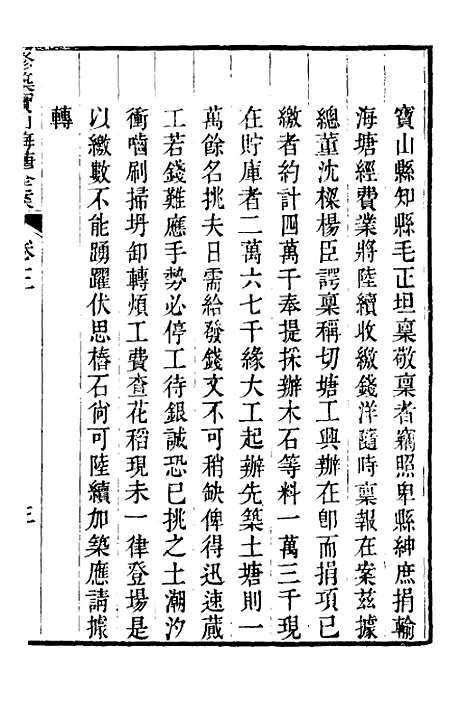 寶山縣知縣毛正坦稟敬稟者竊照卑縣紳庶捐輸
海塘經費業將陸續收繳錢洋隨時稟報在案茲據
總董沈樑楊臣諤稟稱切塘工興辦在卽而捐項已
繳者約計四萬千奉提採辦木石等料一萬三千現
在貯庫者二萬六七千緣大工起辦先築土塘則一
萬餘名挑夫日需給發錢文不可稍缺俾得迅速蕆
工若錢難應手勢必停工待銀誠恐已挑之土潮汐
衝嚙刷掃坍卸轉煩工費查花稻現未一律登場是
以繳數不能踴躍伏思樁石尙可陸續加築應請據
轉
寶山海塘全案
卷三
三